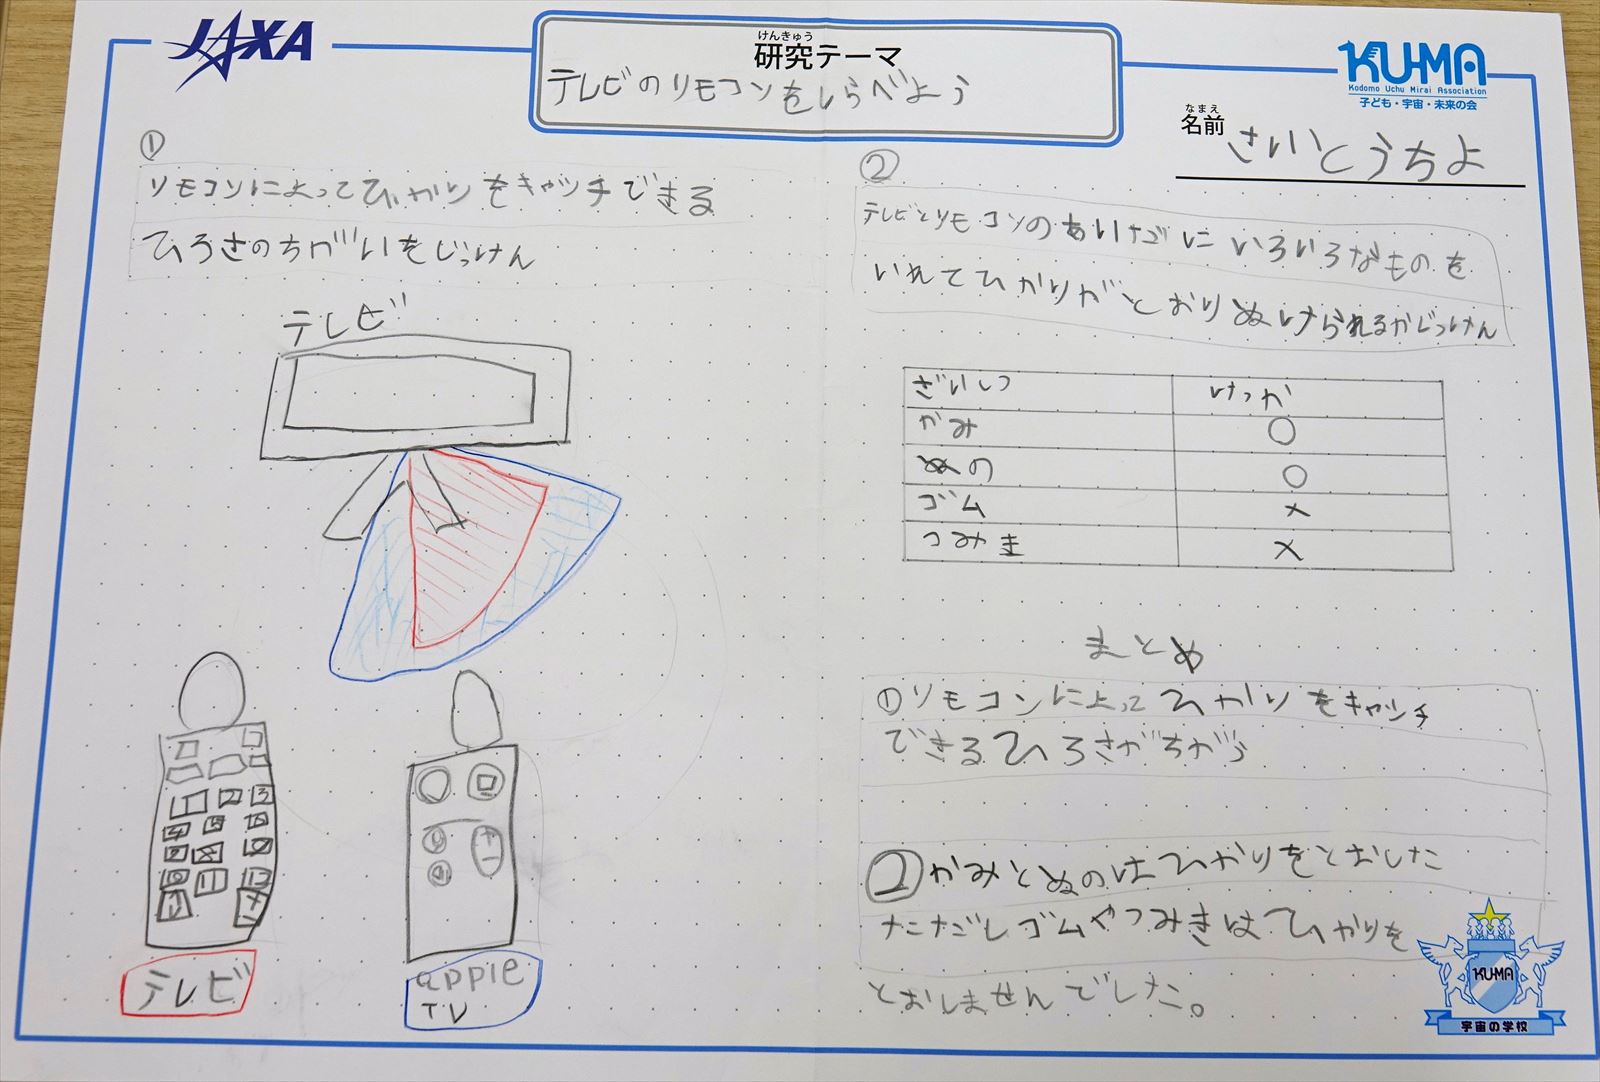 JAXA
けんきゅう
研究テーマ
テレビのリモコンをしらべよう
KU-MA
Kodomo Uchu Mirai Association
子ども・宇宙・未来の会
なまえ
名前 さいとうちよ
①
リモコンによってひかりをキャッチできる
ひろさのちがいをじっけん
テレビ
テレビ
apple
TV
②
テレビとリモコンのあいだにいろいろなものを
いれてひかりがとおりぬけられるかじっけん
ざいしつ けっか
かみ ○
ぬの ○
ゴム ×
つみき ×
まとめ
①リモコンによってひかりをキャッチ
できるひろさがちがう
②かみとぬのはひかりをとおした
ただしゴムやつみきはひかりを
とおしませんでした。
KU-MA
宇宙の学校